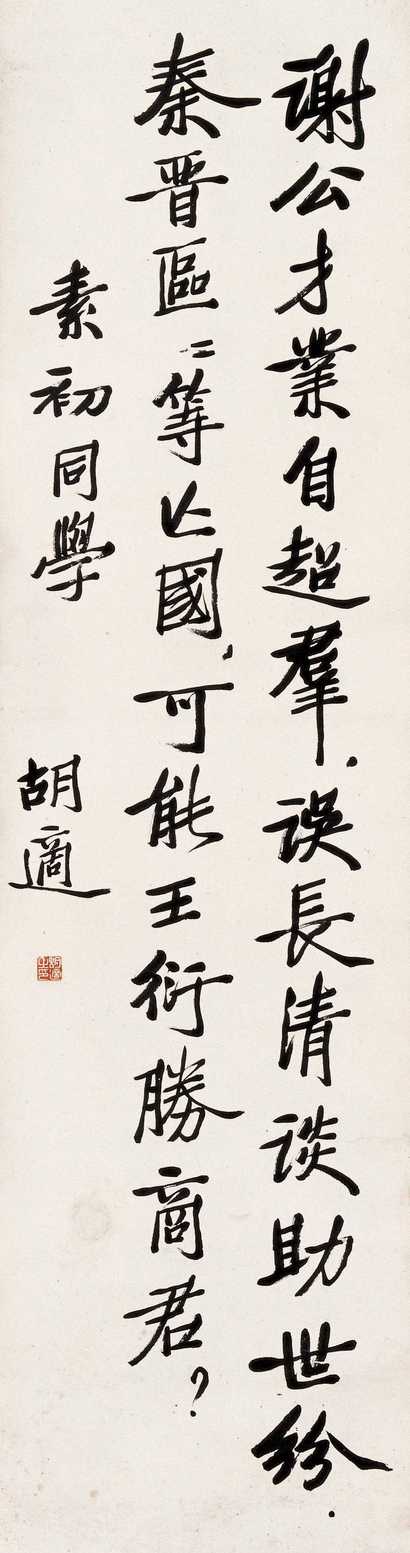 謝公才業自超羣．誤長清談助世紛．
秦晋區〻等亡國、可能王衍勝商君？
素初同學
胡適
胡適之印